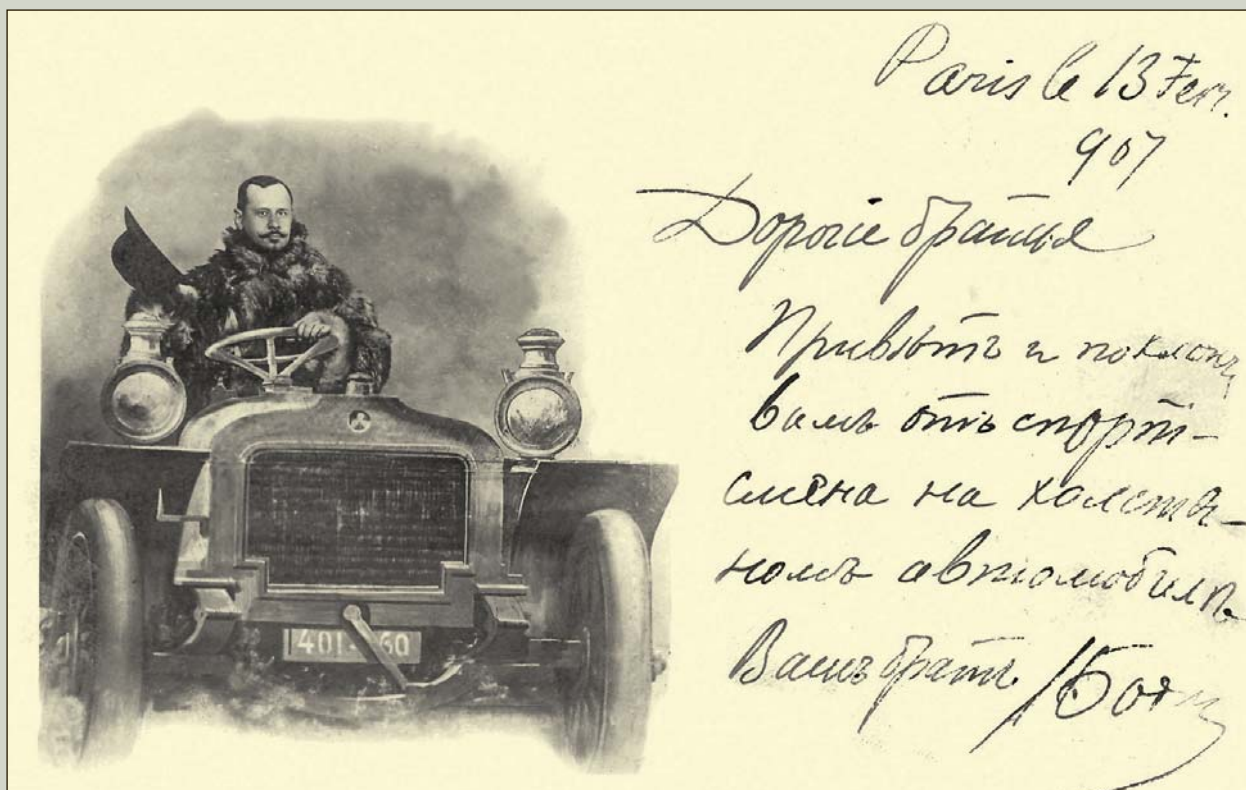 Paris le 13 Fevr.
907
Дорогіе братья
Привѣтъ и поклонъ
вамъ отъ спорт-
смена на холстя-
номъ автомобилѣ
Вашъ братъ
401 60